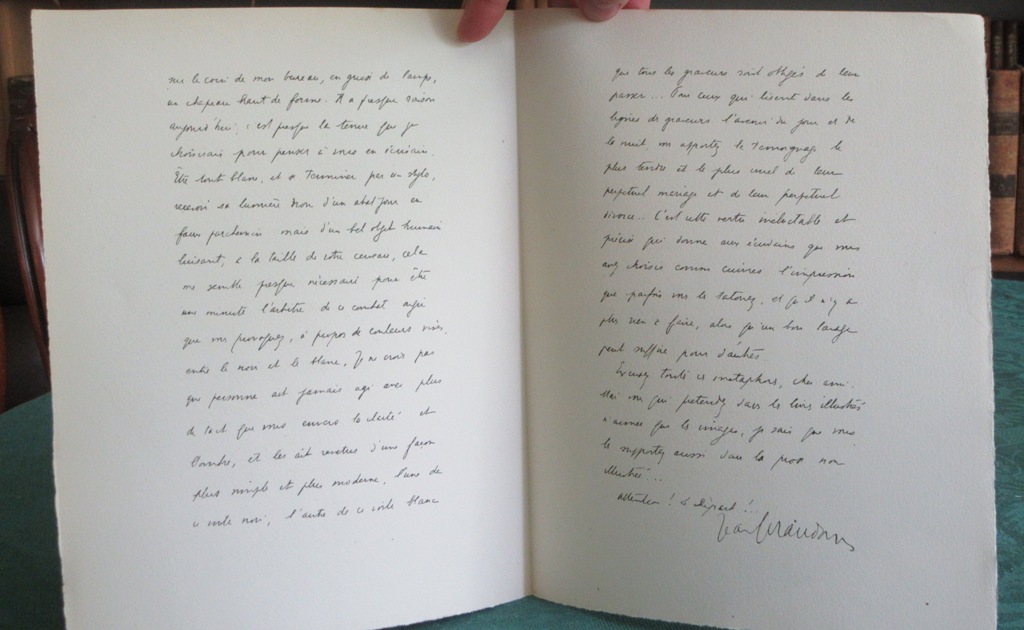 sur le coin de mon bureau, en guise de lampe,
un chapeau haut de forme. Il a presque raison
aujourd'hui; c'est presque la tenue que je
choisirais pour penser à vous en écrivain.
Être tout blanc, et terminer par un stylo,
recevoir sa lumière non d'un abat jour en
faux parchemin mais d'un bel objet humain
luisant, à la taille de votre cerveau, cela
me semble presque nécessaire pour être
une minute l'arbitre de ce combat
que vous provoquez, à propos de couleurs vives,
entre le noir et le blanc. Je ne crois pas
que personne ait jamais agi avec plus
de tact que vous envers la clarté et
l'ombre, et les ait revêtues d'une façon
plus simple et plus moderne, l'une de
ce voile noir, l'autre de ce voile blanc
que tous les graveurs sont obligés de leur
passer... Pour ceux qui lisent dans les
lignes de graveurs l'avenir du jour et de
la nuit, vous apportez le témoignage le
plus tendre et le plus cruel de leur
perpétuel mariage et de leur perpétuel
divorce... C'est cette vertu inéluctable et
précise qui donne aux écrivains que vous
avez choisis comme cuivres l'impression
que parfois vous les tatouez, et qu'il n'y a
plus rien à faire, alors qu'un bon lavage
peut suffire pour d'autres.
Excusez toutes ces métaphores, cher ami.
Mais vous qui prétendez dans les livres illustrés
n'aimer que les images, je sais que vous
les supportez aussi dans la prose non
illustrée...
Attention! Le départ!..
Jean Giraudoux